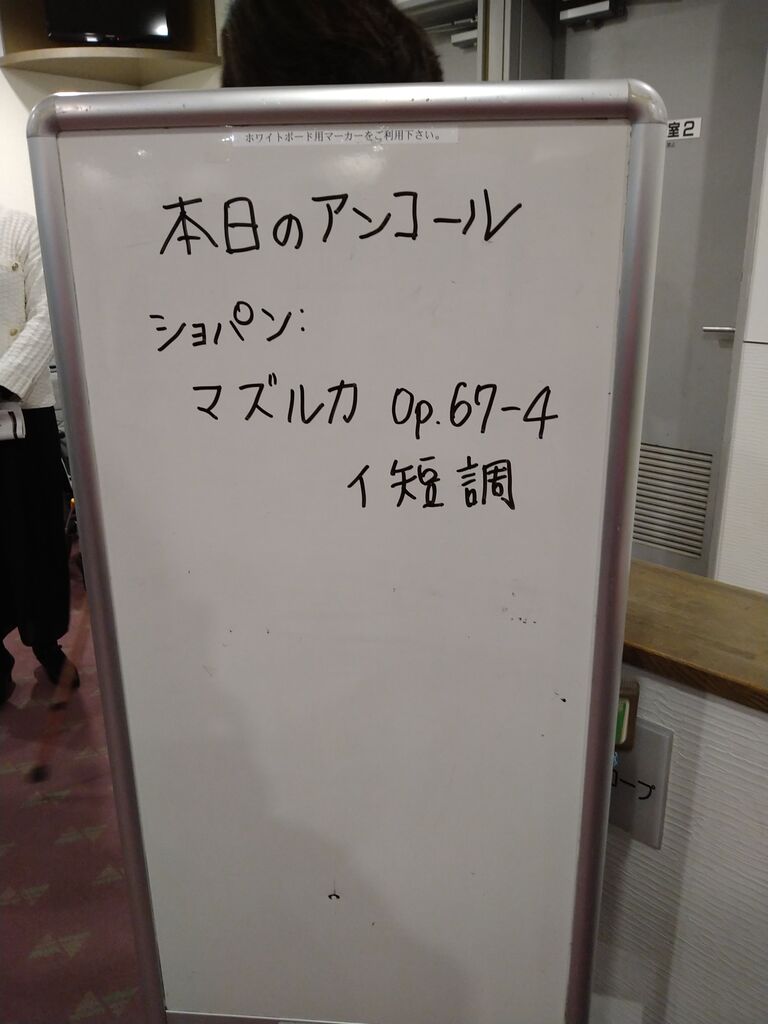 ホワイトボード用マーカーをご利用下さい。
室2
本日のアンコール
ショパン:
マズルカ Op.67-4
イ短調
ロープ